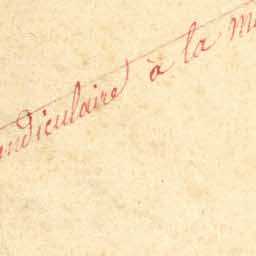 ndiculaire à la m